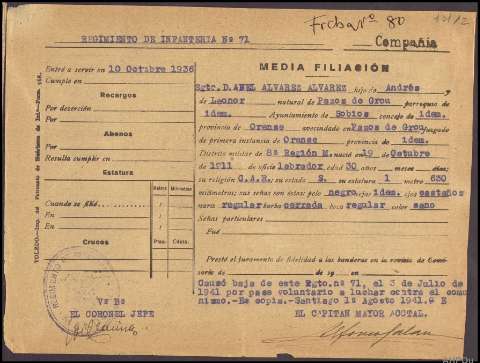 Ficha nº 80
REGIMIENTO DE INFANTERIA Nº 71
Compañia
MEDIA FILIACIÓN
Entró a servir en 10 Octubre 1936
Cumplió en
Recargos
Por deserción
Por
Abonos
Por
Resulta cumplir en
Estatura
Metros Milímetros
Cuando se filió
En
En
Cruces
Ptas. Cénts.
Sgtc. D. ANEL ALVAREZ ALVAREZ hijo de Andrés y
de Leonor natural de Pazos de Grou parroquia de
idem. Ayuntamiento de Sobios concejo de idem.
provincia de Orense avecindado en Pazos de Grou Juzgado
de primera instancia de Orense provincia de idem.
Distrito militar de 8ª Región M. nació en 19 de Octubre
de 1911 de oficio labrador edad 30 años meses días;
su religión C.A.R. su estado S. su estatura 1 metro 630
milímetros; sus señas son éstas: pelo negro cejas idem. ojos castaños
nariz regular barba cerrada boca regular color sano
Señas particulares
Fué
Prestó el juramento de fidelidad a las banderas en la revista de Comi-
sario de de 19 en
Causó baja de este Rgto. nº 71, el 3 de Julio de
1941 por pase voluntario a luchar contra el comu
nismo.-Es copia.- Santiago 1º Agosto 1941.
Vº Bº
EL CORONEL JEFE
EL CAPITAN MAYOR ACCTAL.